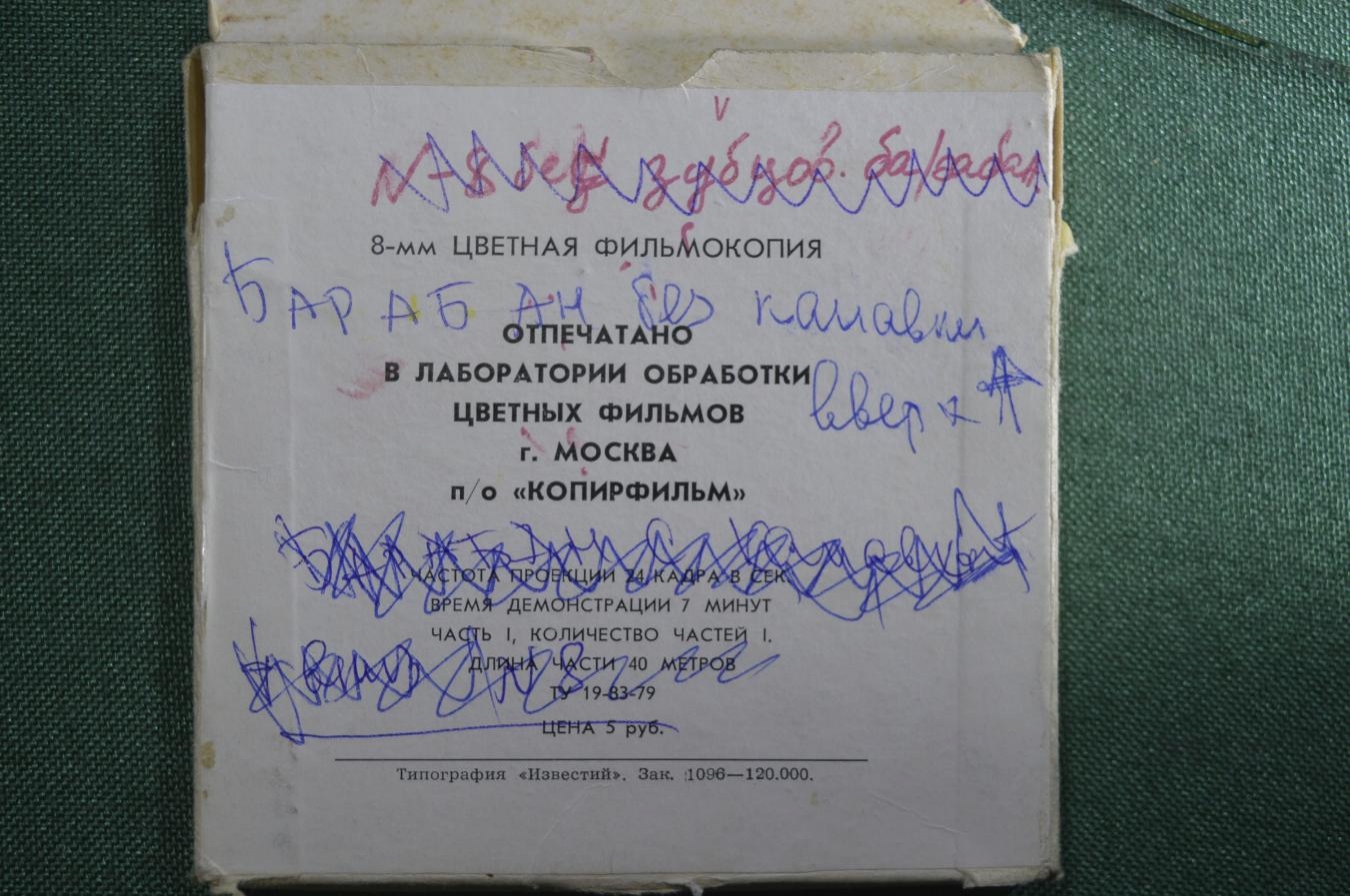 N-8 без зубцов. барабан
8-мм ЦВЕТНАЯ ФИЛЬМОКОПИЯ
БАРАБАН без канавки
ОТПЕЧАТАНО
В ЛАБОРАТОРИИ ОБРАБОТКИ
вверх
ЦВЕТНЫХ ФИЛЬМОВ
г. МОСКВА
п/о «КОПИРФИЛЬМ»
ЧАСТОТА ПРОЕКЦИИ 24 КАДРА В СЕК.
ВРЕМЯ ДЕМОНСТРАЦИИ 7 МИНУТ
ЧАСТЬ I, КОЛИЧЕСТВО ЧАСТЕЙ I.
ДЛИНА ЧАСТИ 40 МЕТРОВ
N8
ТУ 19-83-79
ЦЕНА 5 руб.
Типография «Известий». Зак. 1096—120.000.